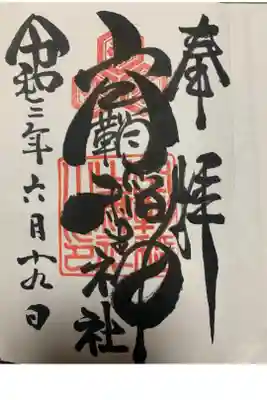 奉拝
空鞘稲生神社
令和三年六月十九日